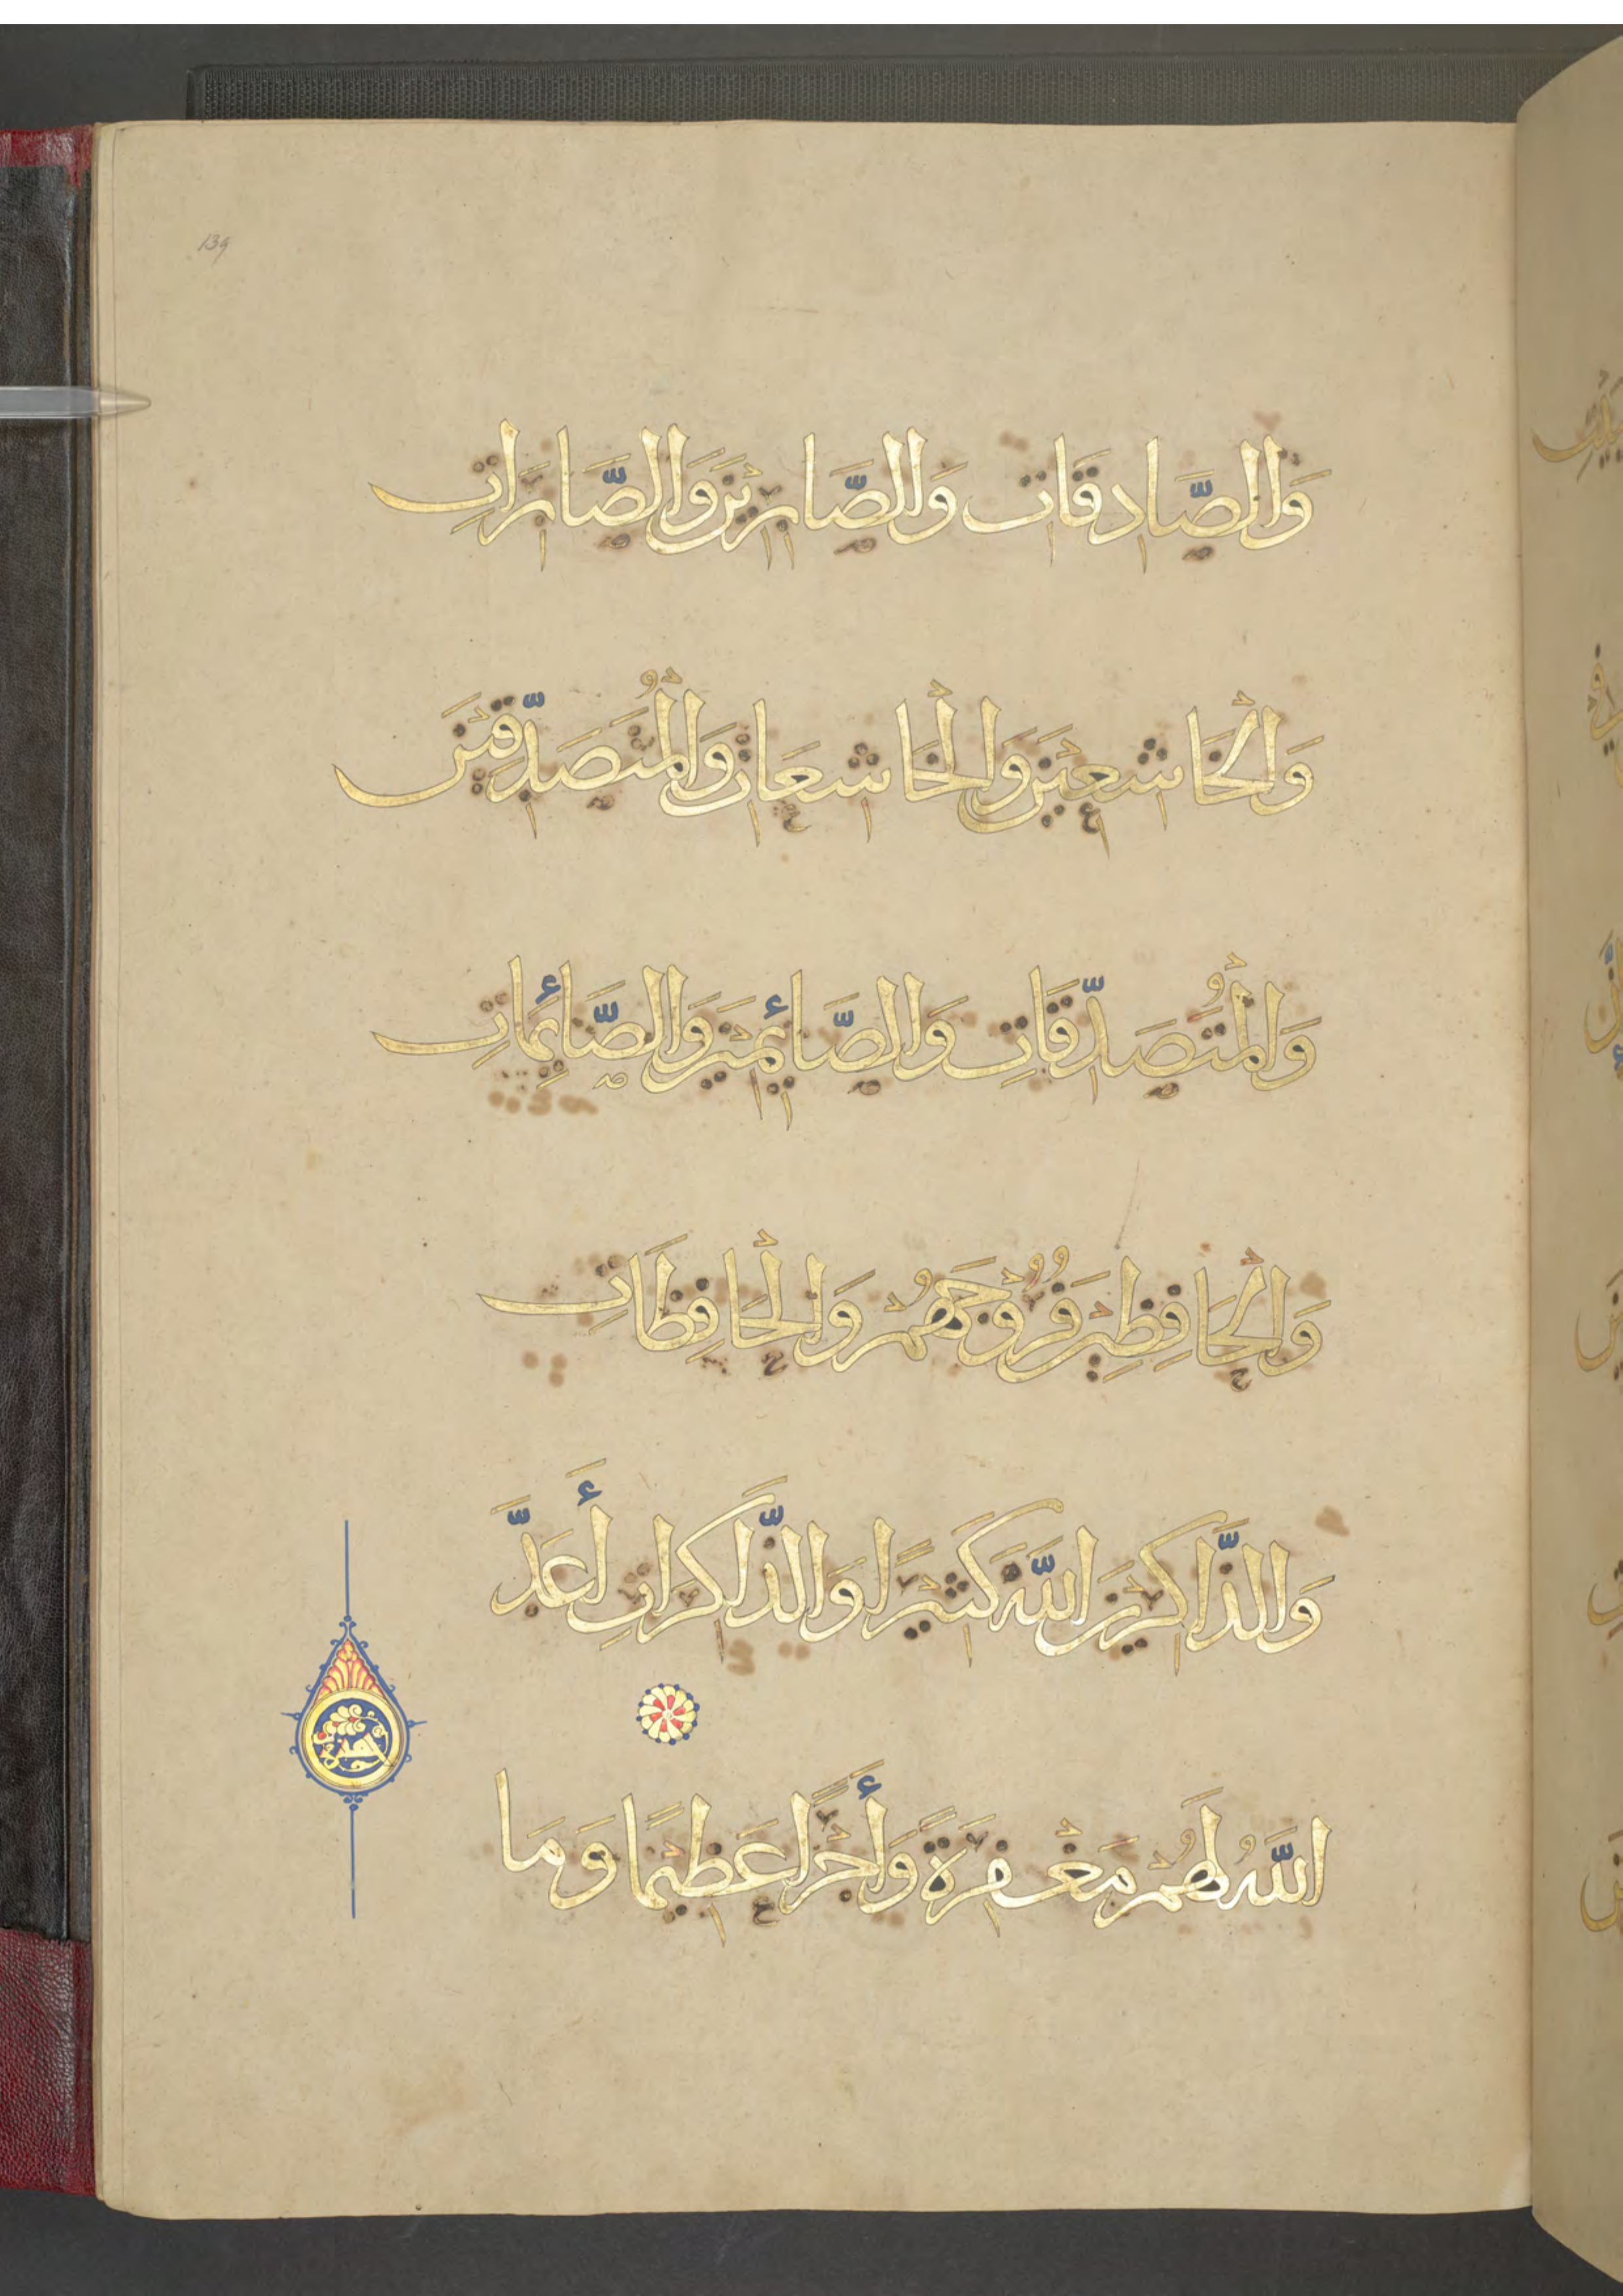 139
وَالصَّادِقَاتِ وَالصَّابِرِيْنَ وَالصَّابِرَاتِ
وَالْخَاشِعِيْنَ وَالْخَاشِعَاتِ وَالْمُتَصَدِّقِيْنَ
وَالْمُتَصَدِّقَاتِ وَالصَّائِمِيْنَ وَالصَّائِمَاتِ
وَالْحَافِظِيْنَ فُرُوْجَهُمْ وَالْحَافِظَاتِ
وَالذَّاكِرِيْنَ اللَّهَ كَثِيْرًا وَالذَّاكِرَاتِ أَعَدَّ
اللَّهُ لَهُمْ مَغْفِرَةً وَأَجْرًا عَظِيْمًا وَمَا